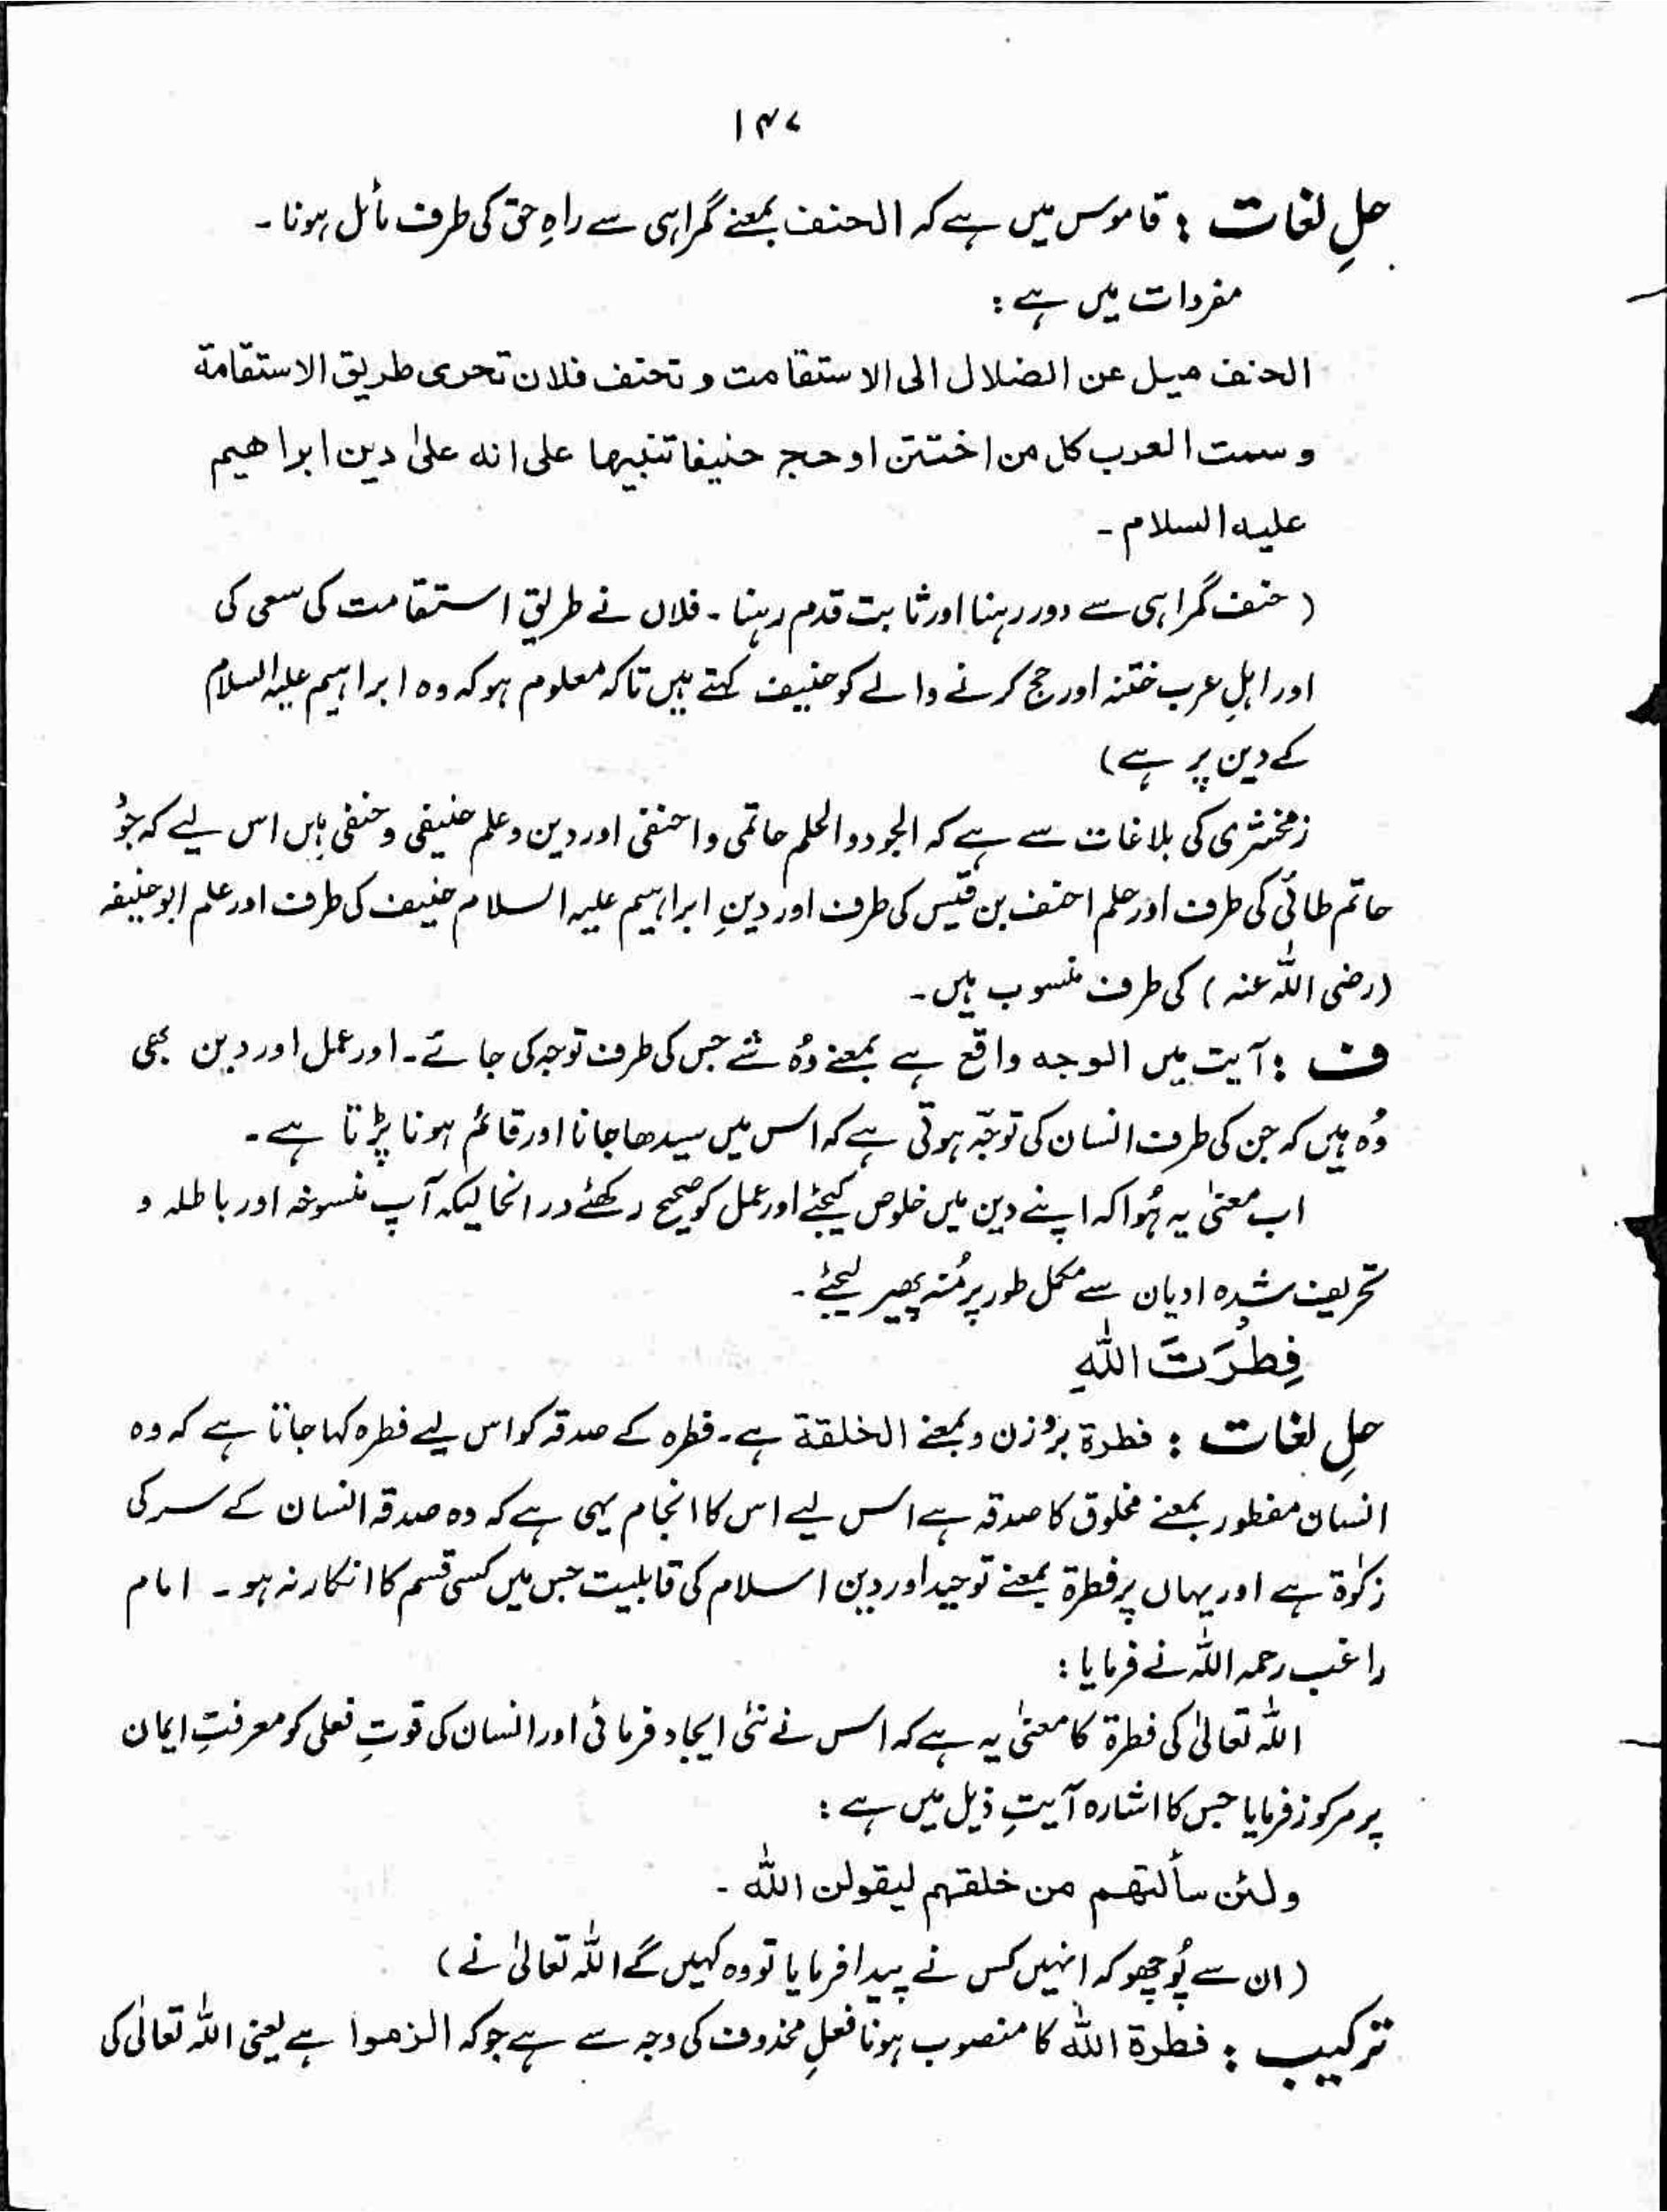 ۱۴۷
حلِ لغات : قاموس میں ہے کہ الحنف بمعنے گمراہی سے راہِ حق کی طرف مائل ہونا ۔
مفردات میں ہے :
الحنف میل عن الضلال الی الاستقامت و تحنف فلان تحری طریق الاستقامة
و سمت العرب کل من اختتن او حج حنیفا تنبیہا علی انہ علیٰ دین ابراھیم
علیہ السلام ۔
( حنف گمراہی سے دور رہنا اور ثابت قدم رہنا ۔ فلاں نے طریقِ استقامت کی سعی کی
اور اہلِ عرب ختنہ اور حج کرنے والے کو حنیف کہتے ہیں تاکہ معلوم ہو کہ وہ ابراہیم علیہ السلام
کے دین پر ہے )
زمخشری کی بلاغات سے ہے کہ الجود والحلم حاتمی و احنفی اور دین و علم حنیفی و حنفی ہیں اس لیے کہ جُود
حاتم طائی کی طرف اور حلم احنف بن قیس کی طرف اور دینِ ابراہیم علیہ السلام حنیف کی طرف اور علم ابوحنیفہ
(رضی اللہ عنہ ) کی طرف منسوب ہیں ۔
ف : آیت میں الوجہ واقع ہے بمعنے وُہ شے جس کی طرف توجہ کی جائے ۔ اور عمل اور دین بھی
وُہ ہیں کہ جن کی طرف انسان کی توجّہ ہوتی ہے کہ اس میں سیدھا جانا اور قائم ہونا پڑتا ہے ۔
اب معنیٰ یہ ہُوا کہ اپنے دین میں خلوص کیجئے اور عمل کو صحیح رکھئے درانحالیکہ آپ منسوخہ اور باطلہ و
تحریف شدہ ادیان سے مکمل طور پر مُنہ پھیر لیجئے ۔
فِطْرَتَ اللّٰهِ
حلِ لغات : فطرة بروزن و بمعنے الخلقة ہے ۔ فطرہ کے صدقہ کو اس لیے فطرہ کہا جاتا ہے کہ وہ
انسان مفطور بمعنے مخلوق کا صدقہ ہے اس لیے اس کا انجام یہی ہے کہ وہ صدقہ انسان کے سر کی
زکوٰة ہے اور یہاں پر فطرة بمعنے توحید اور دین اسلام کی قابلیت جس میں کسی قسم کا انکار نہ ہو ۔ امام
راغب رحمہ اللہ نے فرمایا :
اللہ تعالیٰ کی فطرة کا معنیٰ یہ ہے کہ اس نے نئی ایجاد فرمائی اور انسان کی قوتِ فعلی کو معرفتِ ایمان
پر مرکوز فرمایا جس کا اشارہ آیتِ ذیل میں ہے :
ولئن سألتھم من خلقہم لیقولن اللہ ۔
( ان سے پُوچھو کہ انہیں کس نے پیدا فرمایا تو وہ کہیں گے اللہ تعالیٰ نے )
ترکیب : فطرة اللہ کا منصوب ہونا فعلِ محذوف کی وجہ سے ہے جو کہ الزموا ہے یعنی اللہ تعالیٰ کی